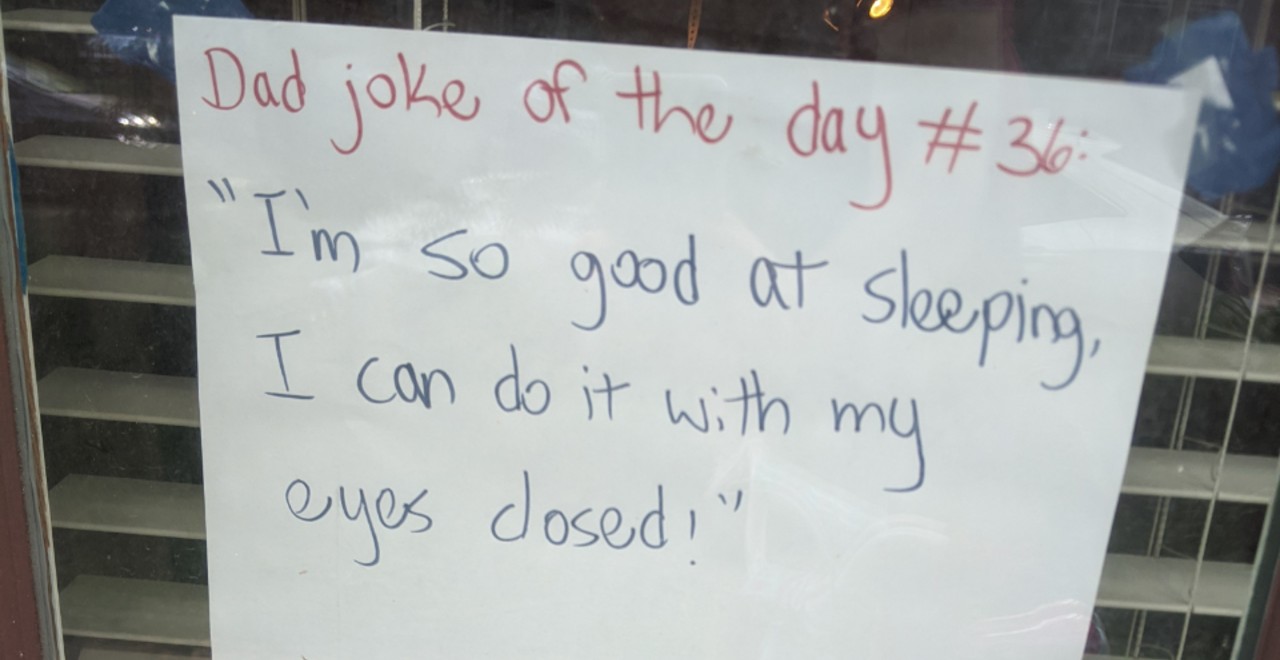 Dad joke of the day #36:
"I'm so good at sleeping,
I can do it with my
eyes closed!"